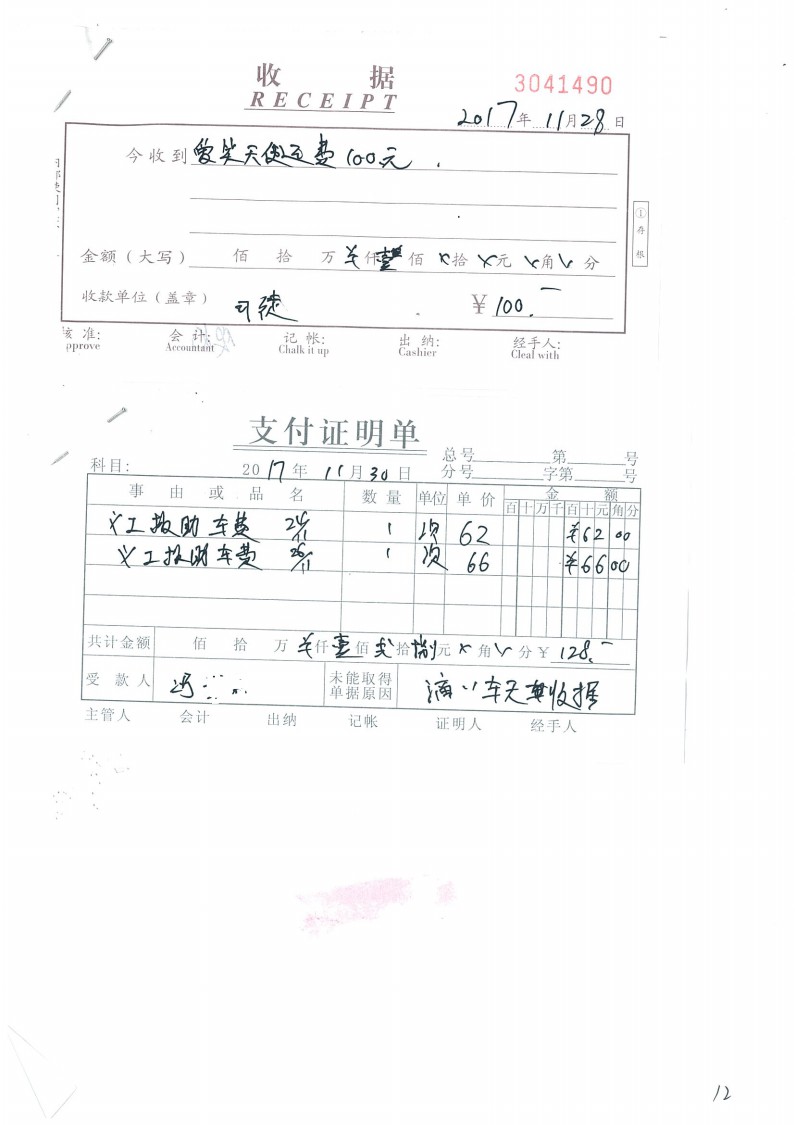 收 据
RECEIPT
3041490
2017年 11月28日
今收到 爱笑天使运费 100元
金额(大写) 佰 拾 万 ¥仟壹佰 ×拾 ×元 ×角 × 分
收款单位(盖章) 司徒 ¥ 100.—
①存根
核 准: 会 计: 记 帐: 出 纳: 经手人:
pprove Accountant Chalk it up Cashier Cleal with
支付证明单
总号 第 号
科目: 2017年 11月30日 分号 字第 号
事 由 或 品 名 数 量 单位 单 价 金 额
百十万千百十元角分
义工救助车费 24/11 1 次 62 ¥62 00
义工救助车费 26/11 1 次 66 ¥66 00
共计金额 佰 拾 万 ¥仟壹佰 贰拾捌元 × 角 × 分 ¥ 128.—
受 款 人 冯 未能取得单据原因 滴 车无 收据
主管人 会计 出纳 记帐 证明人 经手人
12